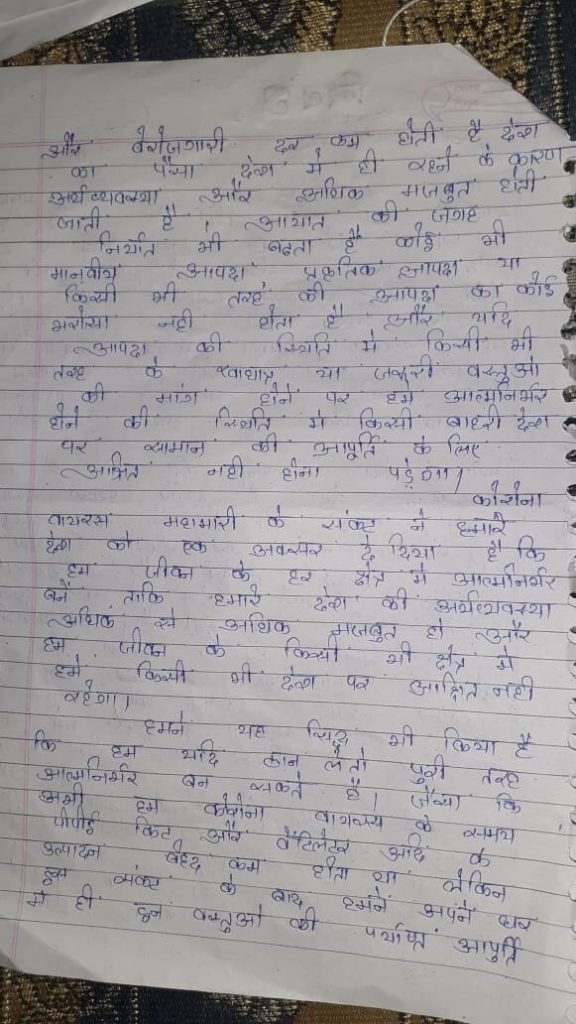 और बेरोजगारी दर कम होती है देश
का पैसा देश मे ही रहने के कारण
अर्थव्यवस्था और अधिक मजबुत होती
जाती है। आयात की जगह
निर्यात भी बढता है कोई भी
मानवीय आपदा प्रकृतिक आपदा या
किसी भी तरह की आपदा का कोई
भरोसा नही होता है और यदि
आपदा की स्थिति मे किसी भी
तरह के खाधान्न या जरूरी वस्तुओ
की मांग होने पर हम आत्मनिर्भर
होने की स्थिति मे किसी बाहरी देश
पर सामान की आपूर्ति के लिए
आश्रित नही होना पड़ेगा।
कोरोना
वायरस महामारी के संकट ने हमारे
देश को एक अवसर दे दिया है कि
हम जीवन के हर क्षेत्र मे आत्मनिर्भर
बनें ताकि हमारे देश की अर्थव्यवस्था
अधिक से अधिक मजबुत हो और
हम जीवन के किसी भी क्षेत्र मे
हमे किसी भी देश पर आश्रित नही
रहेगा।
हमने यह सिद्ध भी किया है
कि हम यदि ठान ले तो पुरी तरह
आत्मनिर्भर बन सकते है। जैसा कि
अभी हम कोरोना वायरस के समय
पीपीई किट और वेंटिलेटर आदि के
उत्पादन बेहद कम होता था लेकिन
इस संकट के बाद हमने अपने घर
मे ही इन वस्तुओ की पर्याप्त आपुर्ति